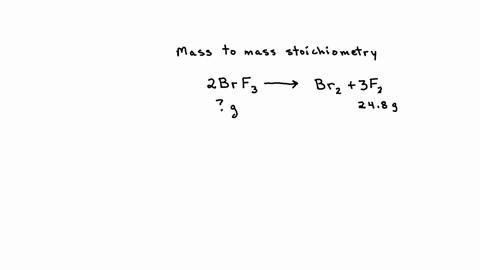 Mass to mass stoichiometry
2BrF₃ ⟶ Br₂ + 3F₂
? g 24.8 g